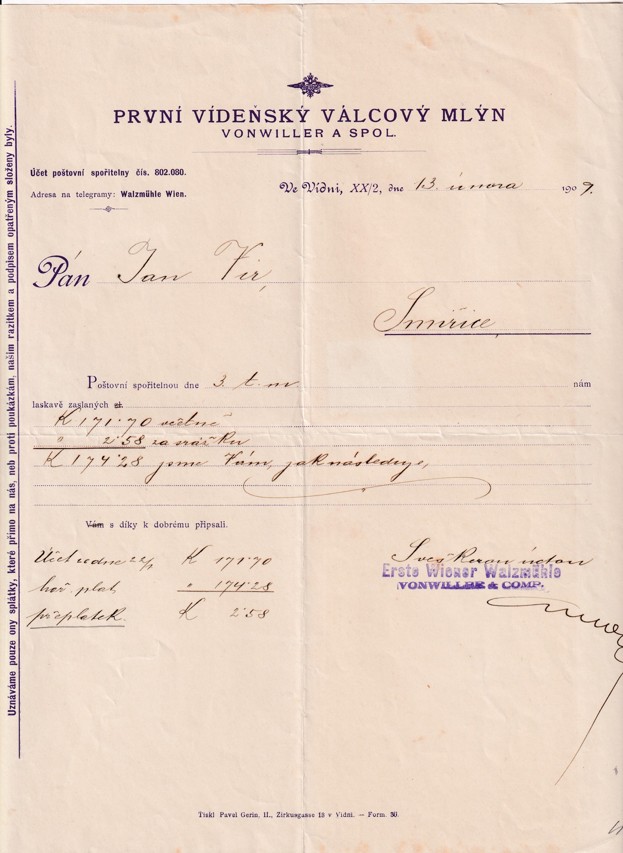 PRVNÍ VÍDEŇSKÝ VÁLCOVÝ MLÝN
VONWILLER A SPOL.
Účet poštovní spořitelny čís. 802.080.
Adresa na telegramy: Walzmühle Wien.
Ve Vídni, XX/2, dne 13. února 1909.
Pán Jan Vir,
Smiřice,
Poštovní spořitelnou dne 3. t. m. nám
laskavě zaslaných zl.
K 171·70 včetně
" 2·58 za srážku
K 174·28 jsme Vám, jak následuje,
Vám s díky k dobrému připsali.
Účet ze dne 22/1 K 171·70
hoř. plat " 174·28
přeplatek K 2·58
Erste Wiener Walzmühle
VONWILLER & COMP.
Uznáváme pouze ony splátky, které přímo na nás, neb proti poukázkám, naším razítkem a podpisem opatřeným složeny byly.
Tiskl Pavel Gerin, II., Zirkusgasse 13 v Vídni. — Form. 30.